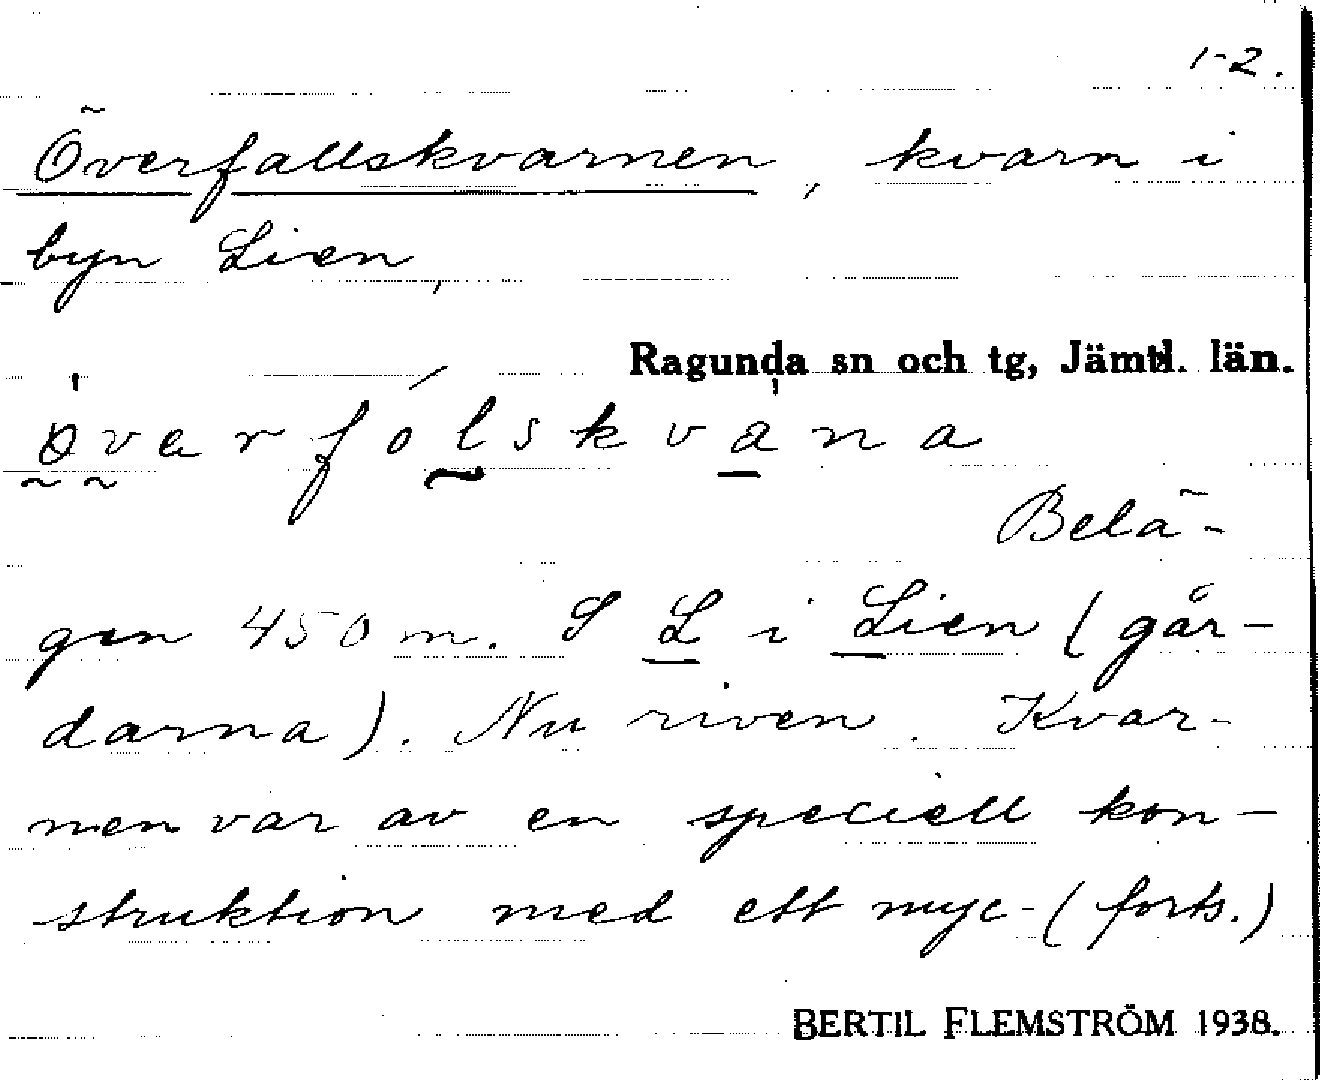 1-2.
Överfallskvarnen, kvarn i
byn Lien,
Ragunda sn och tg, Jämtl. län.
överfólskvana
Belä-
gen 450 m. S L i Lien (går-
darna). Nu riven. Kvar-
nen var av en speciell kon-
struktion med ett myc- (forts.)
BERTIL FLEMSTRÖM 1938.